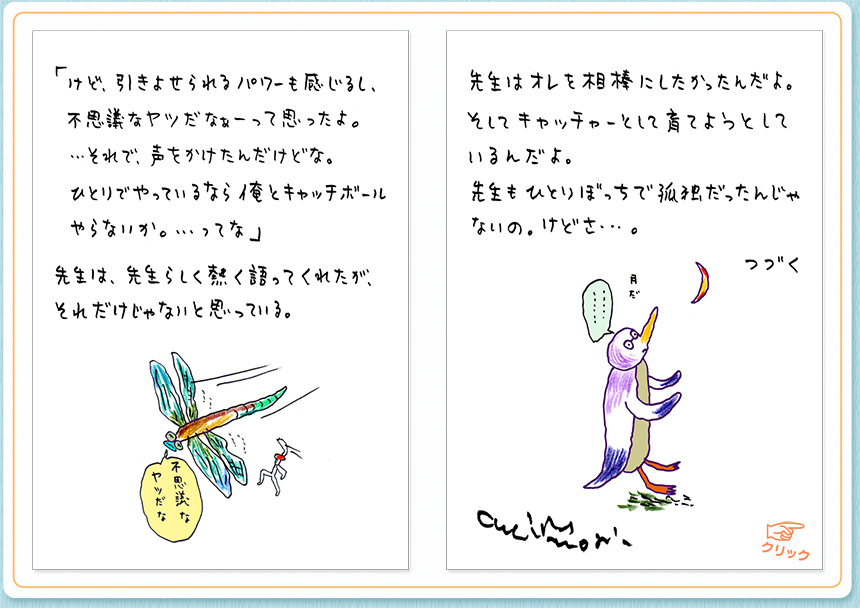 「けど、引きよせられるパワーも感じるし、
不思議なヤツだなぁーって思ったよ。
…それで、声をかけたんだけどな。
ひとりでやっているなら俺とキャッチボール
やらないか。…ってな」
先生は、先生らしく熱く語ってくれたが、
それだけじゃないと思っている。
不思議な
ヤツだな
先生はオレを相棒にしたかったんだよ。
そしてキャッチャーとして育てようとして
いるんだよ。
先生もひとりぼっちで孤独だったんじゃ
ないの。けどさ…。
つづく
月だ
………
クリック